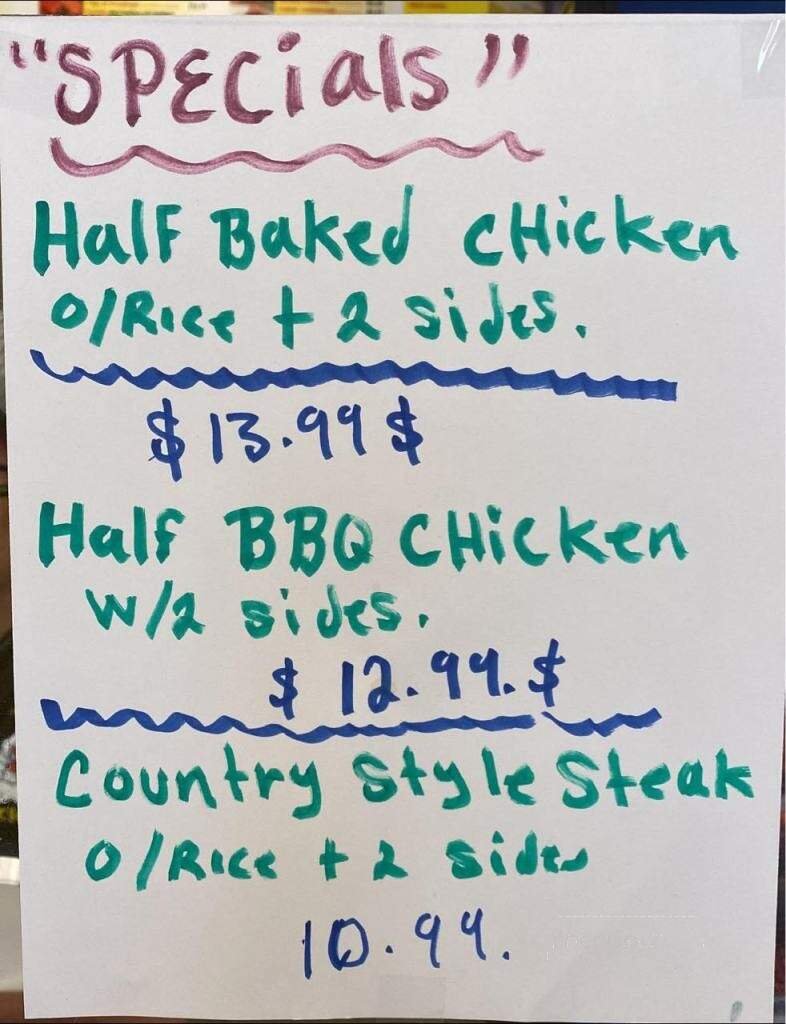 "SPECials"
Half Baked CHicken
O/Rice + 2 sides.
$ 13.99 $
Half BBQ CHicken
W/2 sides.
$ 12.99. $
Country Style Steak
O/Rice + 2 sides
10.99.